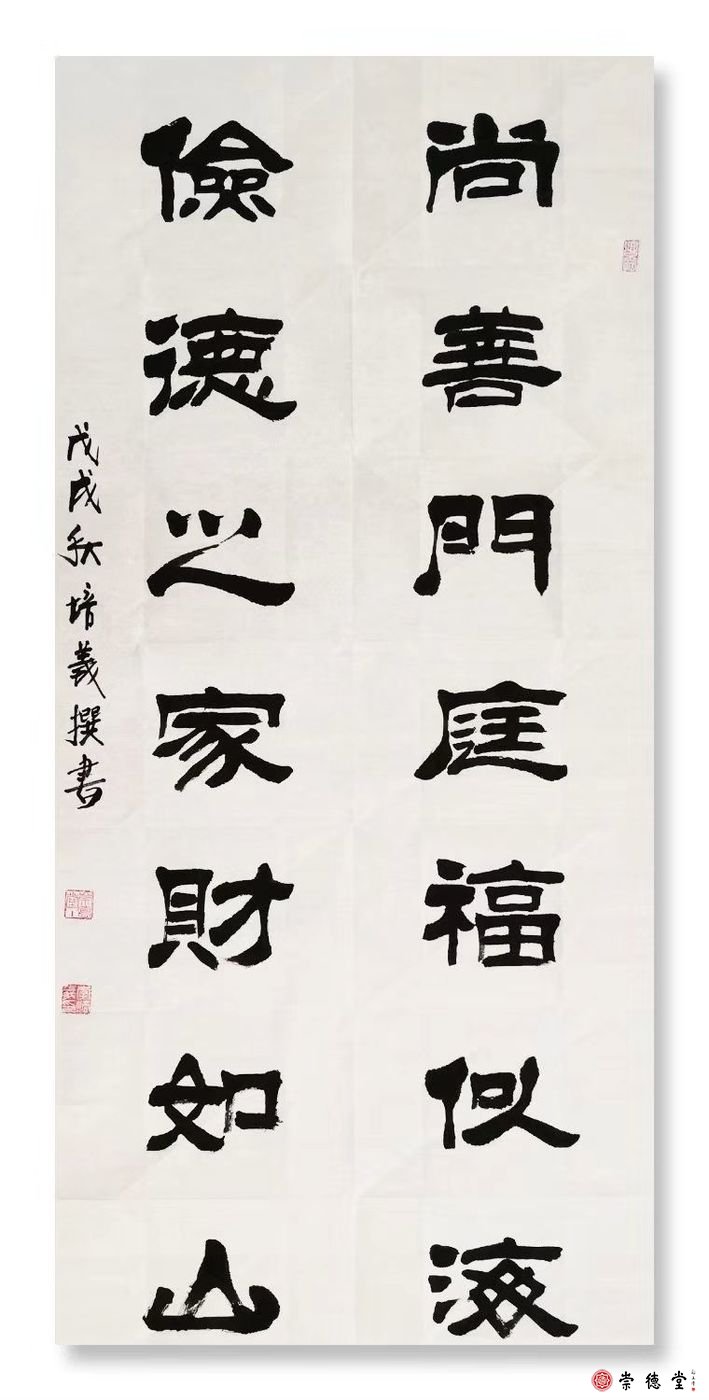 尚善門庭福似海
儉德之家財如山
戊戌秋培義撰書
崇德堂